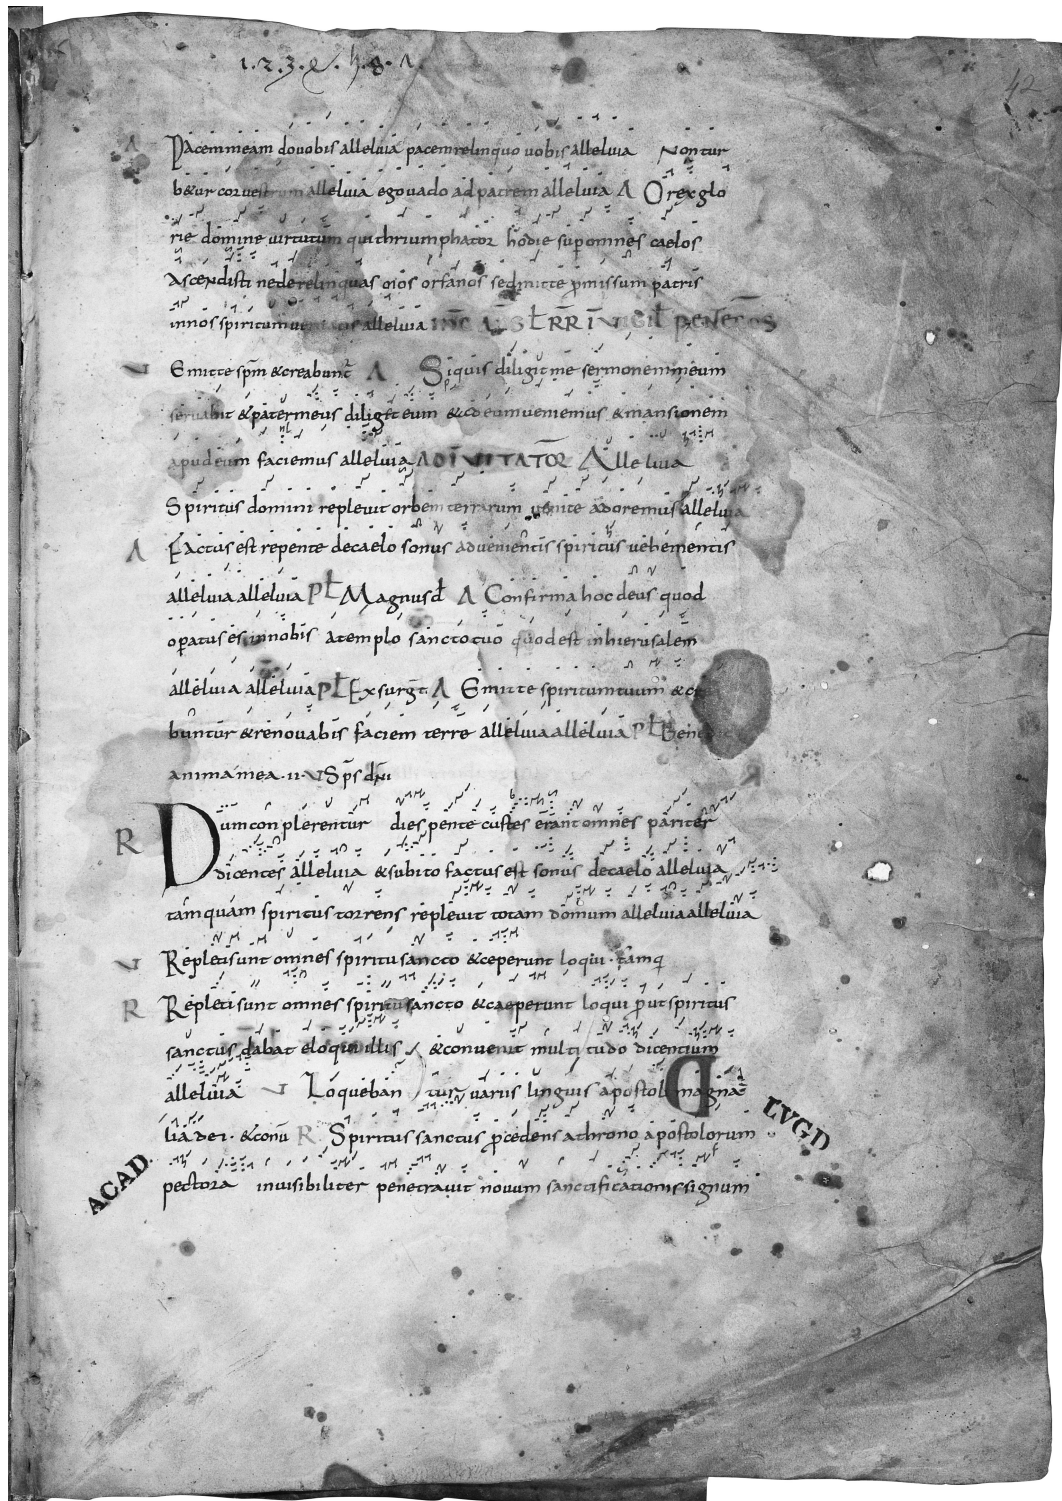 1. 2. 3. &. h. 8. Λ.
42
Λ Pacem meam do vobis alleluia pacem relinquo uobis alleluia Non tur
b&ur cor vestrum alleluia ego vado ad patrem alleluia Λ O rex glo
rie domine uirtutum qui thriumphator hodie sup omnes caelos
Ascendisti ne derelinquas nos orfanos sed mitte pmissum patris
innos spiritum ueritatis alleluia
V Emitte spm & creabunt Λ Siquis diligit me sermonem meum
seruabit & pater meus diliget eum & ad eum ueniemus & mansionem
apud eum faciemus alleluia AD INVITATOR Alleluia
Spiritus domini repleuit orbem terrarum uenite adoremus alleluia
Λ Factus est repente decaelo sonus aduenientis spiritus uehementis
alleluia alleluia PL Magnus d Λ Confirma hoc deus quod
opatus es innobis atemplo sancto tuo quod est inhierusalem
alleluia alleluia PL Exsurgat Λ Emitte spiritum tuum &
buntur & renouabis faciem terre alleluia alleluia PL Benedic
anima mea .11. V Sps dni
R Dum con plerentur dies pente custes erant omnes pariter
dicentes alleluia & subito factus est sonus decaelo alleluia
tamquam spiritus torrens repleuit totam domum alleluia alleluia
V Repleti sunt omnes spiritu sancto & ceperunt loqui. Tamq
R Repleti sunt omnes spiritu sancto & caeperunt loqui put spiritus
sanctus dabat eloqui illis & conuenit multitudo dicentium
alleluia V Loqueban tur uariis linguis apostoli magna
lia dei. & conu R Spiritus sanctus pcedens athrono apostolorum
pectora inuisibiliter penetrauit nouum sanctificationis signum
ACAD. LVGD